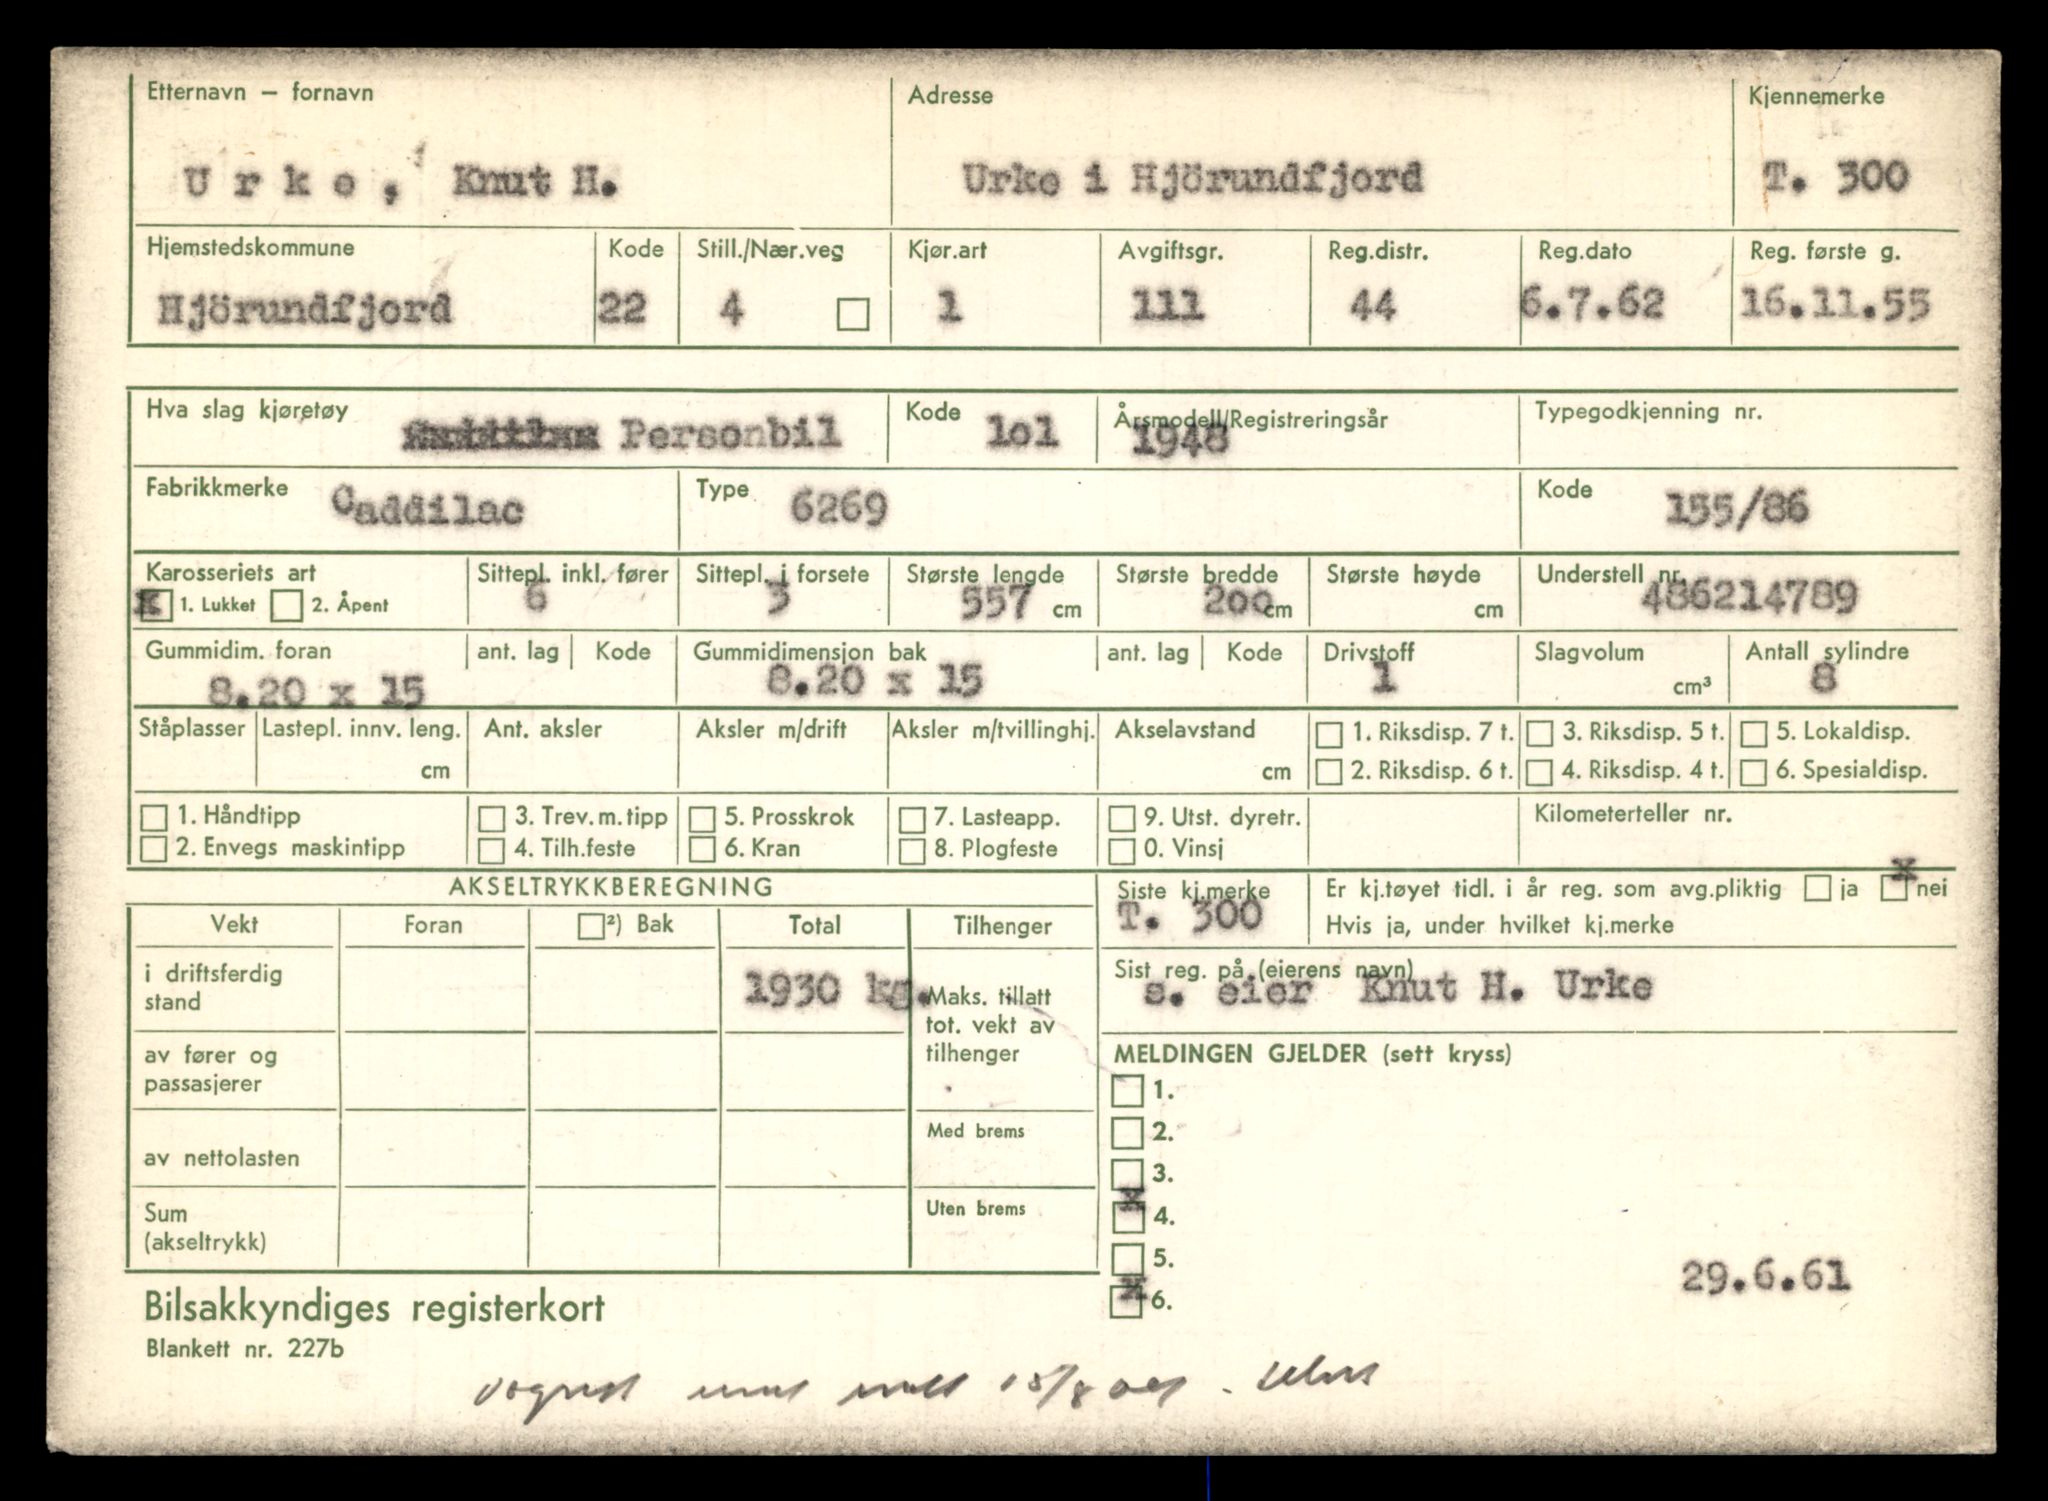 Etternavn – fornavn Adresse Kjennemerke
U r k e , Knut H. Urke i Hjörundfjord T. 300
Hjemstedskommune Kode Still./Nær.veg Kjør.art Avgiftsgr. Reg.distr. Reg.dato Reg. første g.
Hjörundfjord 22 4 1 111 44 6.7.62 16.11.55
Hva slag kjøretøy Personbil Kode 1o1 Årsmodell/Registreringsår 1948 Typegodkjenning nr.
Fabrikkmerke Caddilac Type 6269 Kode 155/86
Karosseriets art Sittepl. inkl. fører Sittepl. i forsete Største lengde Største bredde Største høyde Understell nr.
x 1. Lukket 2. Åpent 6 3 557 cm 2oo cm cm 486214789
Gummidim. foran ant. lag Kode Gummidimensjon bak ant. lag Kode Drivstoff Slagvolum Antall sylindre
8.20 x 15 8.20 x 15 1 cm³ 8
Ståplasser Lastepl. innv. leng. Ant. aksler Aksler m/drift Aksler m/tvillinghj. Akselavstand 1. Riksdisp. 7 t. 3. Riksdisp. 5 t. 5. Lokaldisp.
cm cm 2. Riksdisp. 6 t. 4. Riksdisp. 4 t. 6. Spesialdisp.
1. Håndtipp 3. Trev. m. tipp 5. Prosskrok 7. Lasteapp. 9. Utst. dyretr. Kilometerteller nr.
2. Envegs maskintipp 4. Tilh.feste 6. Kran 8. Plogfeste 0. Vinsj
AKSELTRYKKBEREGNING Siste kj.merke Er kj.tøyet tidl. i år reg. som avg.pliktig ja x nei
Vekt Foran ²) Bak Total Tilhenger T. 300 Hvis ja, under hvilket kj.merke
i driftsferdig stand 1930 kg. Maks. tillatt tot. vekt av tilhenger
Sist reg. på (eierens navn)
s. eier Knut H. Urke
av fører og passasjerer
MELDINGEN GJELDER (sett kryss)
1.
2.
av nettolasten Med brems
3.
x 4.
Sum (akseltrykk) Uten brems
5.
x 6.
29.6.61
Bilsakkyndiges registerkort
Blankett nr. 227b
15/8